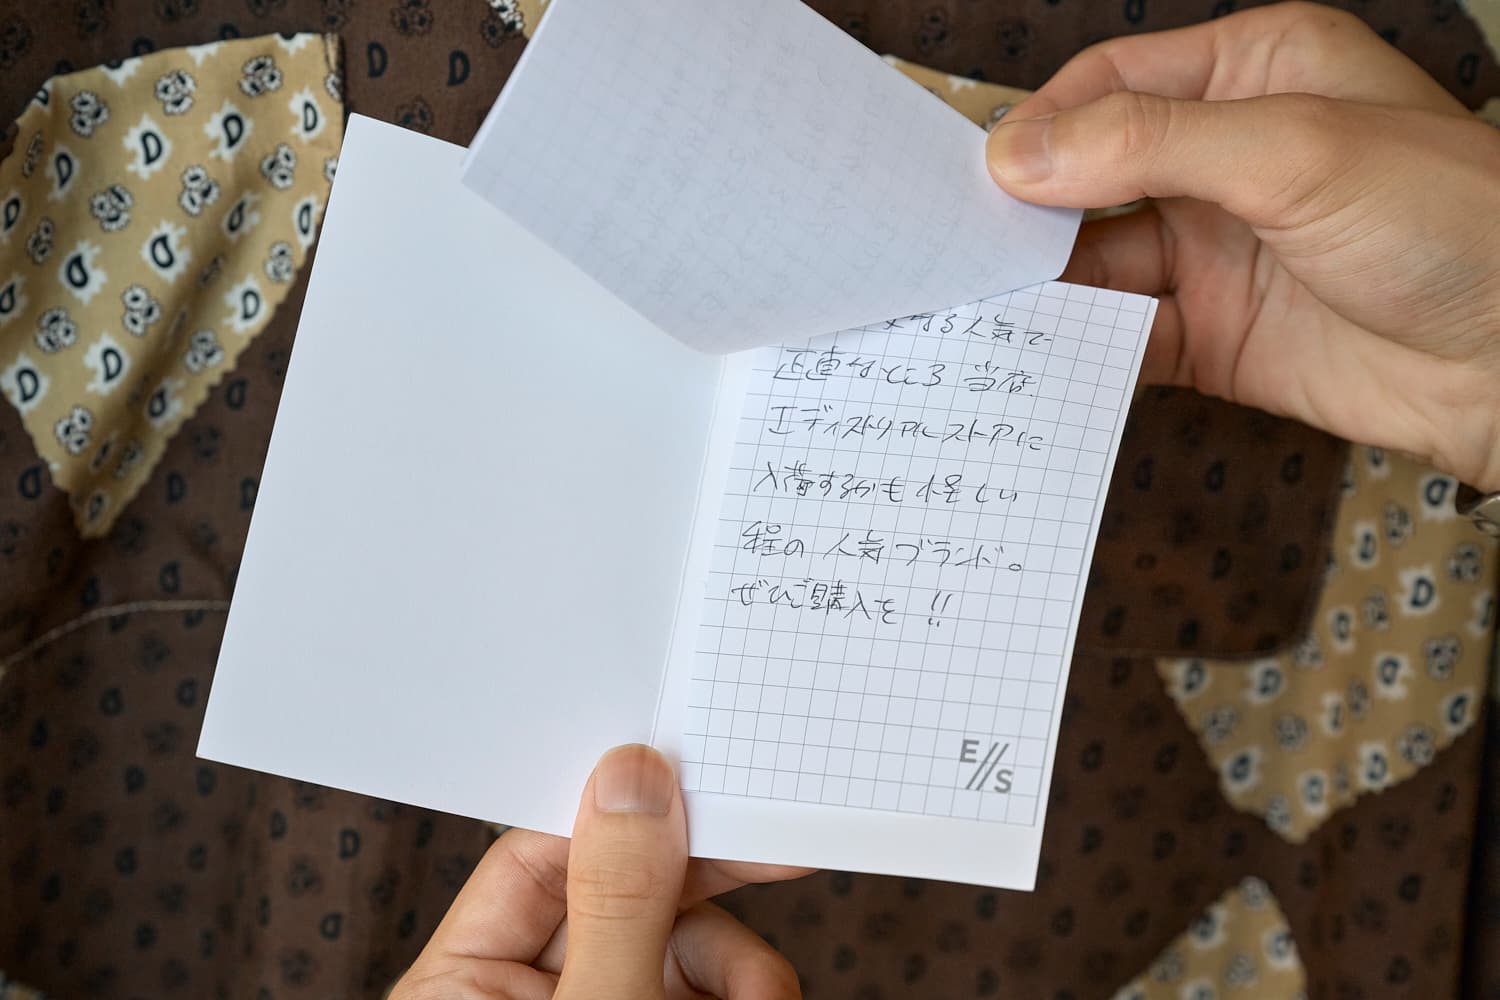 する人気で
正直なところ当店
エディストリアルストアに
入荷するかも怪しい
程の人気ブランド。
ぜひご購入を!!
E//S